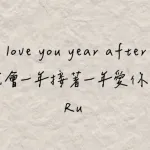 love you year after
會一年接著一年愛你
Ru